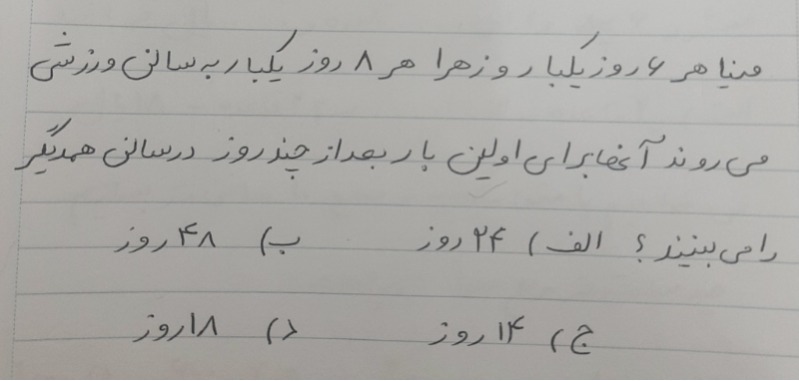 مینا هر ۶ روز یکبار و زهرا هر ۸ روز یکبار به سالن ورزشی
می روند آنها برای اولین بار بعد از چند روز در سالن همدیگر
را می بینند؟ الف) ۲۴ روز ب) ۴۸ روز
ج) ۱۴ روز د) ۱۸ روز